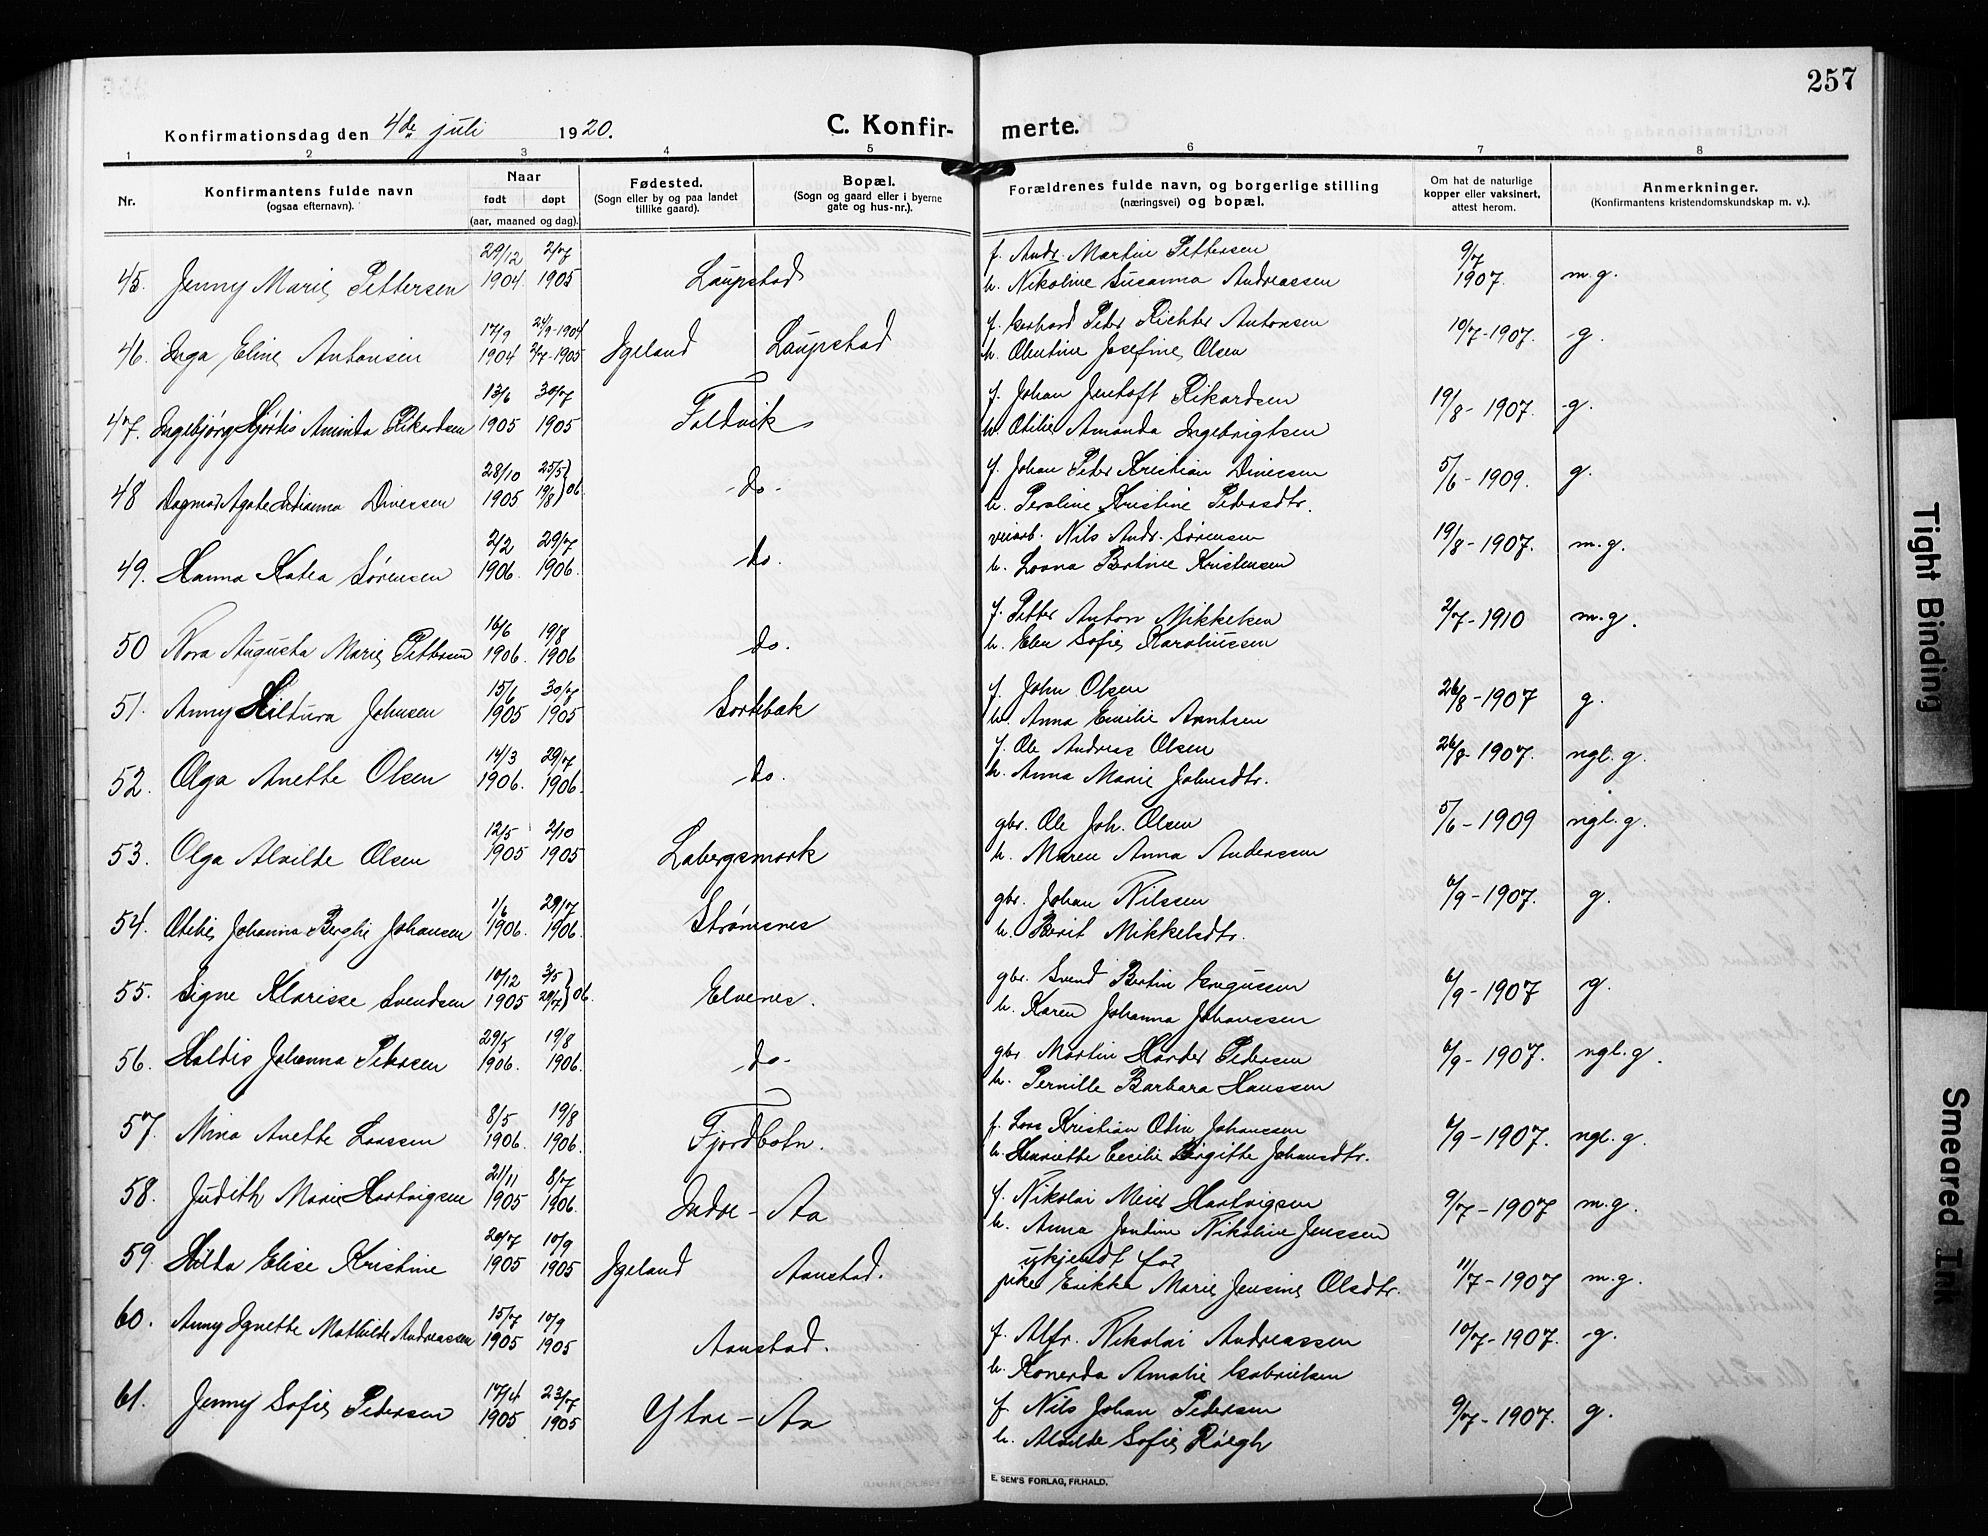 257
Konfirmationsdag den 4de juli 1920.
C. Konfir-merte.
1 2 3 4 5 6 7 8
Nr. Konfirmantens fulde navn (ogsaa efternavn). Naar født døpt (aar, maaned og dag). Fødested. (Sogn eller by og paa landet tillike gaard). Bopæl. (Sogn og gaard eller i byerne gate og hus-nr.). Forældrenes fulde navn, og borgerlige stilling (næringsvei) og bopæl. Om hat de naturlige kopper eller vaksinert, attest herom. Anmerkninger. (Konfirmantens kristendomskundskap m. v.).
29/12 2/7 f. Andr. Martin Pettersen 9/7
45. Jenny Marie Pettersen 1904 1905 Laupstad h. Nikoline Susanna Andreassen 1907. m.g.
17/9 24/9-1904 f. Gerhard Peder Richter Antonsen
46. Inga Eline Antonsen 1904 2/7-1905 Igeland Laupstad h. Olentine Josefine Olsen 10/7-1907. g.
13/6 30/7 f. Johan Jentoft Rikardsen
47. Ingebjørg Hjørdis Aminda Rikardsen 1905 1905 Foldvik h. Otilie Amanda Ingebrigtsen 19/8-1907. g.
28/10 25/5 f. Johan Peder Kristian Divessen
48 Dagmar Agate Divessen 1905 19/8 06. do- h. Peroline Kristine Pedersdtr. 5/6-1909. g.
2/2 29/7 veiarb. Nils Andr. Sørensen
49. Hanna Katea Sørensen 1906. 1906. do. h. Lovna Bertine Kristensen 19/8-1907. m.g.
16/6 19/8 f. Petter Anton Mikkelsen
50 Nora Augusta Marie Pettersen 1906. 1906 do. h. Elen Sofie Karoliussen 2/7-1910 m.g.
15/6 30/7 f. John Olsen
51. Anny Hiltura Johnsen 1905 1905 Sortebæk h. Anna Emilie Arntsen 26/8-1907 g.
14/3 29/7 f. Ole Andreas Olsen
52. Olga Anette Olsen 1906. 1906. do. h. Anna Marie Johnsdtr. 26/8-1907. ngl.g.
12/5 2/10 gbr. Ole Joh. Olsen
53. Olga Alvilde Olsen 1905 1905 Labergsmark h. Maren Anna Anderssen 5/6-1909 ngl.g.
1/6 29/7 gbr. Johan Nilssen
54. Otilie Johanna Berghe Johansen 1906. 1906. Strømsnes h. Berit Mikkelsdtr. 6/9-1907. g.
10/12 3/5 gbr. Svend Bertin Gregussen
55. Signe Klarisse Svendsen 1905 29/7 06. Elvenes. h. Karen Johanna Johanssen 6/9-1907 g.
29/5 19/8 gbr. Martin Harder Pedersen
56. Haldis Johanna Pedersen 1906. 1906. do- h. Pernille Barbara Hanssen 6/9-1907. ngl.g.
8/5 19/8 f. Lars Kristian Odin Johanssen
57. Mina Anette Larssen 1906. 1906. Fjordbotn. h. Henriette Cecilie Birgitte Johansdtr. 6/9-1907. ngl.g.
21/11 8/7 f. Nikolai Meier Hartvigsen
58. Judith Marie Hartvigsen 1905 1906. Indre-Aa h. Anna Jordine Nikoline Jenssen 9/7-1907 m.g.
20/7 10/9 ukjendt far
59. Hilda Elise Kristine 1905 1905 Igeland Aanstad. pike Erikke Marie Jensine Olsdtr. 11/7-1907 m.g.
15/7 10/9 f. Alfr. Nikolai Andreassen
60. Anny Agnette Mathilde Andreassen 1905 1905 Aanstad. h. Konerda Amalie Gabrielsen 10/7-1907. g.
17/4 23/7 f. Nils Johan Pedersen
61. Jenny Sofie Pedersen 1905 1905 Ytre-Aa h. Alvilde Sofie Røegh 9/7-1907. g.
E. SEM'S FORLAG, FR.HALD.
Tight Binding
Smeared Ink